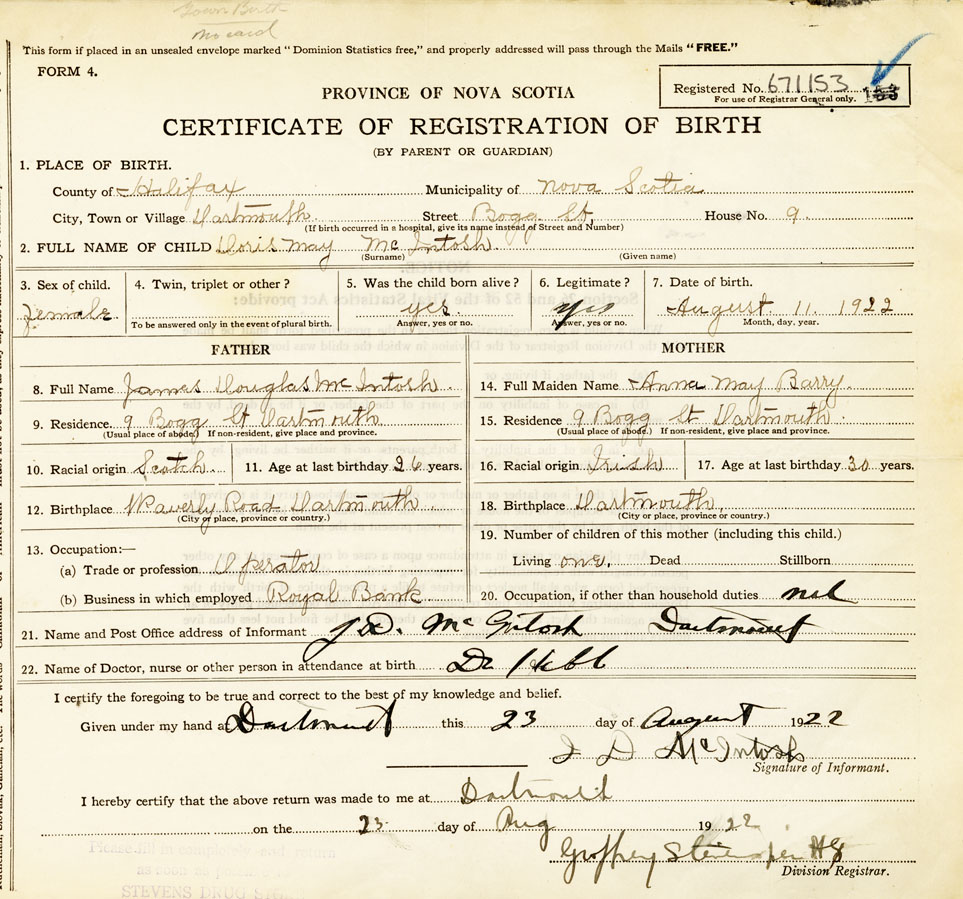 Town Birth
no card
This form if placed in an unsealed envelope marked "Dominion Statistics free," and properly addressed will pass through the Mails "FREE."
FORM 4.
Registered No. 671153 153
For use of Registrar General only.
PROVINCE OF NOVA SCOTIA
CERTIFICATE OF REGISTRATION OF BIRTH
(BY PARENT OR GUARDIAN)
1. PLACE OF BIRTH.
County of Halifax Municipality of Nova Scotia
City, Town or Village Dartmouth Street Bogg St, House No. 9
(If birth occurred in a hospital, give its name instead of Street and Number)
2. FULL NAME OF CHILD Doris May McIntosh.
(Surname) (Given name)
3. Sex of child. 4. Twin, triplet or other? 5. Was the child born alive? 6. Legitimate? 7. Date of birth.
Female yes. yes August 11. 1922
To be answered only in the event of plural birth. Answer, yes or no. Answer, yes or no. Month, day, year.
FATHER MOTHER
8. Full Name James Douglas McIntosh. 14. Full Maiden Name Anna May Barry.
9. Residence. 9 Bogg St Dartmouth. 15. Residence 9 Bogg St Dartmouth.
(Usual place of abode.) If non-resident, give place and province. (Usual place of abode.) If non-resident, give place and province.
10. Racial origin Scotch. 11. Age at last birthday 26 years. 16. Racial origin Irish 17. Age at last birthday 30 years.
12. Birthplace Waverly Road Dartmouth. 18. Birthplace Dartmouth.
(City or place, province or country.) (City or place, province or country.)
13. Occupation:— 19. Number of children of this mother (including this child.)
(a) Trade or profession Operator Living one, Dead Stillborn
(b) Business in which employed Royal Bank 20. Occupation, if other than household duties
21. Name and Post Office address of Informant J.D. McIntosh Dartmouth
22. Name of Doctor, nurse or other person in attendance at birth Dr Hebb
I certify the foregoing to be true and correct to the best of my knowledge and belief.
Given under my hand at Dartmouth this 23 day of August 1922
J D McIntosh
Signature of Informant.
I hereby certify that the above return was made to me at Dartmouth
on the 23 day of Aug 1922
Geoffrey
Division Registrar.
STEVENS DRUG